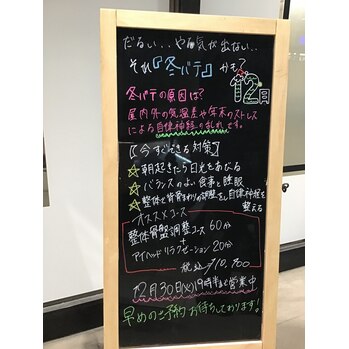 だるい・・やる気が出ない・・
それ『冬バテ』かも?
12月
冬バテの原因は?
屋内外の気温差や年末のストレス
による自律神経の乱れです。
【今すぐできる対策】
☆朝起きたら日光をあびる
☆バランスのよい食事と睡眠
☆整体で背骨まわりの調整をし自律神経を
整える
オススメコース
整体骨盤調整コース 60分
+
アイヘッドリラクゼーション 20分
税込 ¥10,700
12月30日(火)19時半まで営業中
早めのご予約お待ちしております!